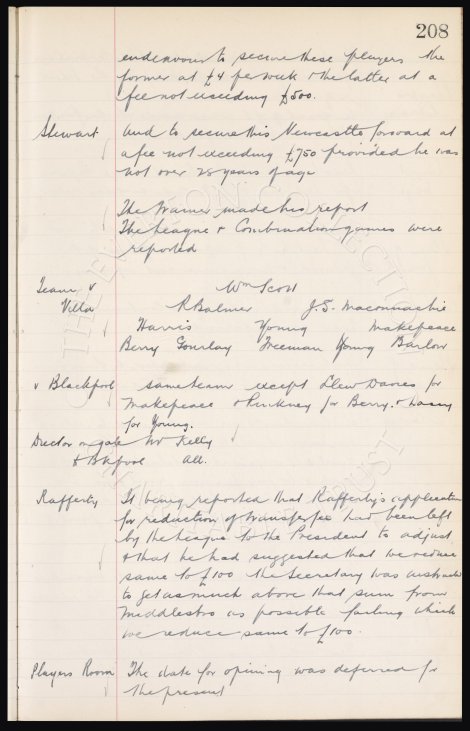 208
endeavour to secure these players the
former at £4 per week & the latter at a
fee not exceeding £500.
Stewart And to secure this Newcastle forward at
a fee not exceeding £750 provided he was
not over 28 years of age
The Trainer made his report
The League & Combination games were
reported
Team v Wm Scott
Villa R Balmer J.S. Maconnachie
Harris Young Makepeace
Berry Gourlay Freeman Young Barlow
v Blackpool same team except Llew Davies for
Makepeace & Pinkney for Berry. & Lacey
for Young.
Director on gate Mr Kelly
to Bkpool All.
Rafferty It being reported that Rafferty's application
for reduction of transfer fee had been left
by the League to the President to adjust
& that he had suggested that we reduce
same to £100 the Secretary was instructed
to get as much above that sum from
Middlesbro as possible failing which
we reduce same to £100.
Players Room The date for opining was deferred for
the present
THE EVERTON COLLECTION
TRUST